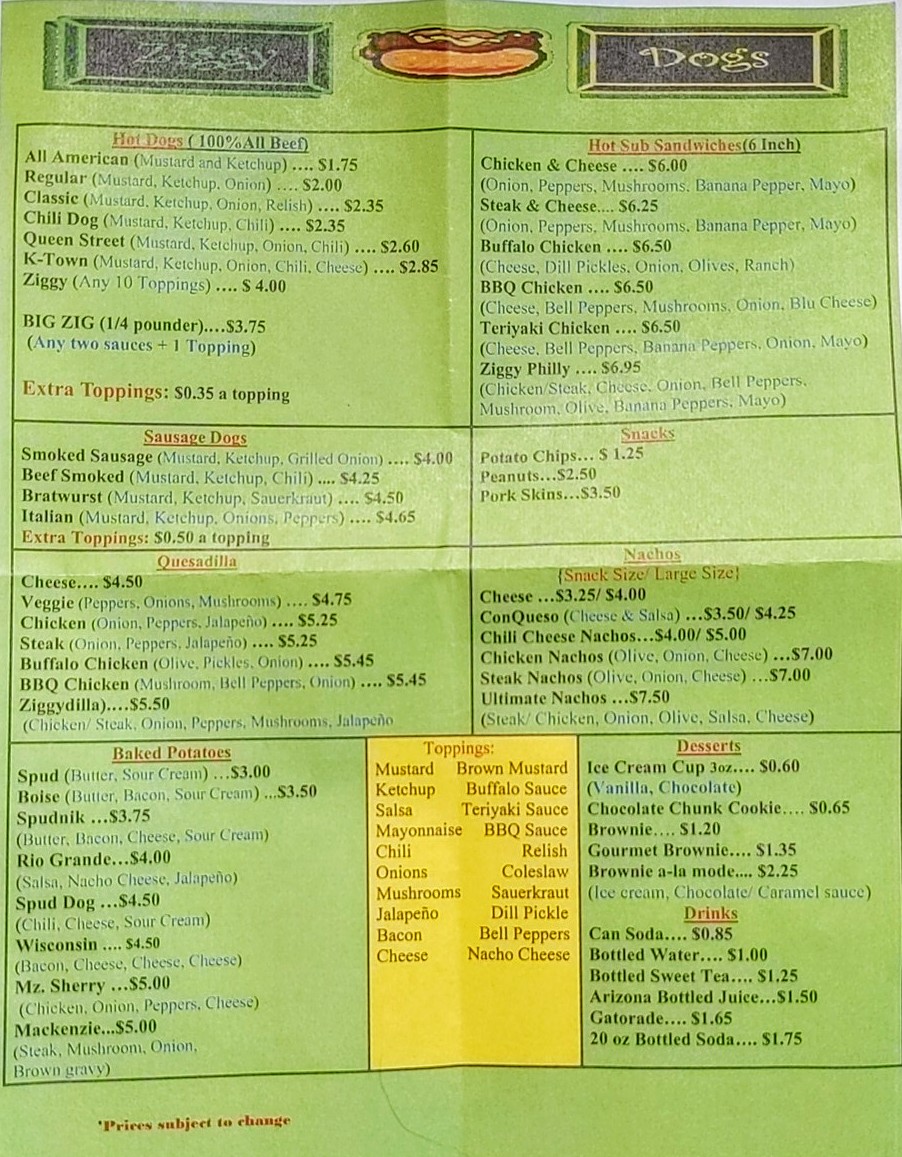 Ziggy Dogs
Hot Dogs ( 100%All Beef)
All American (Mustard and Ketchup) .... $1.75
Regular (Mustard, Ketchup, Onion) .... $2.00
Classic (Mustard, Ketchup, Onion, Relish) .... $2.35
Chili Dog (Mustard, Ketchup, Chili) .... $2.35
Queen Street (Mustard, Ketchup, Onion, Chili) .... $2.60
K-Town (Mustard, Ketchup, Onion, Chili, Cheese) .... $2.85
Ziggy (Any 10 Toppings) .... $ 4.00
BIG ZIG (1/4 pounder)....$3.75
(Any two sauces + 1 Topping)
Extra Toppings: $0.35 a topping
Hot Sub Sandwiches(6 Inch)
Chicken & Cheese .... $6.00
(Onion, Peppers, Mushrooms, Banana Pepper, Mayo)
Steak & Cheese.... $6.25
(Onion, Peppers, Mushrooms, Banana Pepper, Mayo)
Buffalo Chicken .... $6.50
(Cheese, Dill Pickles, Onion, Olives, Ranch)
BBQ Chicken .... $6.50
(Cheese, Bell Peppers, Mushrooms, Onion, Blu Cheese)
Teriyaki Chicken .... $6.50
(Cheese, Bell Peppers, Banana Peppers, Onion, Mayo)
Ziggy Philly .... $6.95
(Chicken/Steak, Cheese, Onion, Bell Peppers,
Mushroom, Olive, Banana Peppers, Mayo)
Sausage Dogs
Smoked Sausage (Mustard, Ketchup, Grilled Onion) .... $4.00
Beef Smoked (Mustard, Ketchup, Chili) .... $4.25
Bratwurst (Mustard, Ketchup, Sauerkraut) .... $4.50
Italian (Mustard, Ketchup, Onions, Peppers) .... $4.65
Extra Toppings: $0.50 a topping
Snacks
Potato Chips... $ 1.25
Peanuts...$2.50
Pork Skins...$3.50
Quesadilla
Cheese.... $4.50
Veggie (Peppers, Onions, Mushrooms) .... $4.75
Chicken (Onion, Peppers, Jalapeño) .... $5.25
Steak (Onion, Peppers, Jalapeño) .... $5.25
Buffalo Chicken (Olive, Pickles, Onion) .... $5.45
BBQ Chicken (Mushroom, Bell Peppers, Onion) .... $5.45
Ziggydilla)....$5.50
(Chicken/ Steak, Onion, Peppers, Mushrooms, Jalapeño
Nachos
{Snack Size/ Large Size}
Cheese ...$3.25/ $4.00
ConQueso (Cheese & Salsa) ...$3.50/ $4.25
Chili Cheese Nachos...$4.00/ $5.00
Chicken Nachos (Olive, Onion, Cheese) ...$7.00
Steak Nachos (Olive, Onion, Cheese) ...$7.00
Ultimate Nachos ...$7.50
(Steak/ Chicken, Onion, Olive, Salsa, Cheese)
Baked Potatoes
Spud (Butter, Sour Cream) ...$3.00
Boise (Butter, Bacon, Sour Cream) ...$3.50
Spudnik ...$3.75
(Butter, Bacon, Cheese, Sour Cream)
Rio Grande...$4.00
(Salsa, Nacho Cheese, Jalapeño)
Spud Dog ...$4.50
(Chili, Cheese, Sour Cream)
Wisconsin .... $4.50
(Bacon, Cheese, Cheese, Cheese)
Mz. Sherry ...$5.00
(Chicken, Onion, Peppers, Cheese)
Mackenzie...$5.00
(Steak, Mushroom, Onion,
Brown gravy)
Toppings:
Mustard Brown Mustard
Ketchup Buffalo Sauce
Salsa Teriyaki Sauce
Mayonnaise BBQ Sauce
Chili Relish
Onions Coleslaw
Mushrooms Sauerkraut
Jalapeño Dill Pickle
Bacon Bell Peppers
Cheese Nacho Cheese
Desserts
Ice Cream Cup 3oz.... $0.60
(Vanilla, Chocolate)
Chocolate Chunk Cookie.... $0.65
Brownie.... $1.20
Gourmet Brownie.... $1.35
Brownie a-la mode.... $2.25
(Ice cream, Chocolate/ Caramel sauce)
Drinks
Can Soda.... $0.85
Bottled Water.... $1.00
Bottled Sweet Tea.... $1.25
Arizona Bottled Juice...$1.50
Gatorade.... $1.65
20 oz Bottled Soda.... $1.75
*Prices subject to change